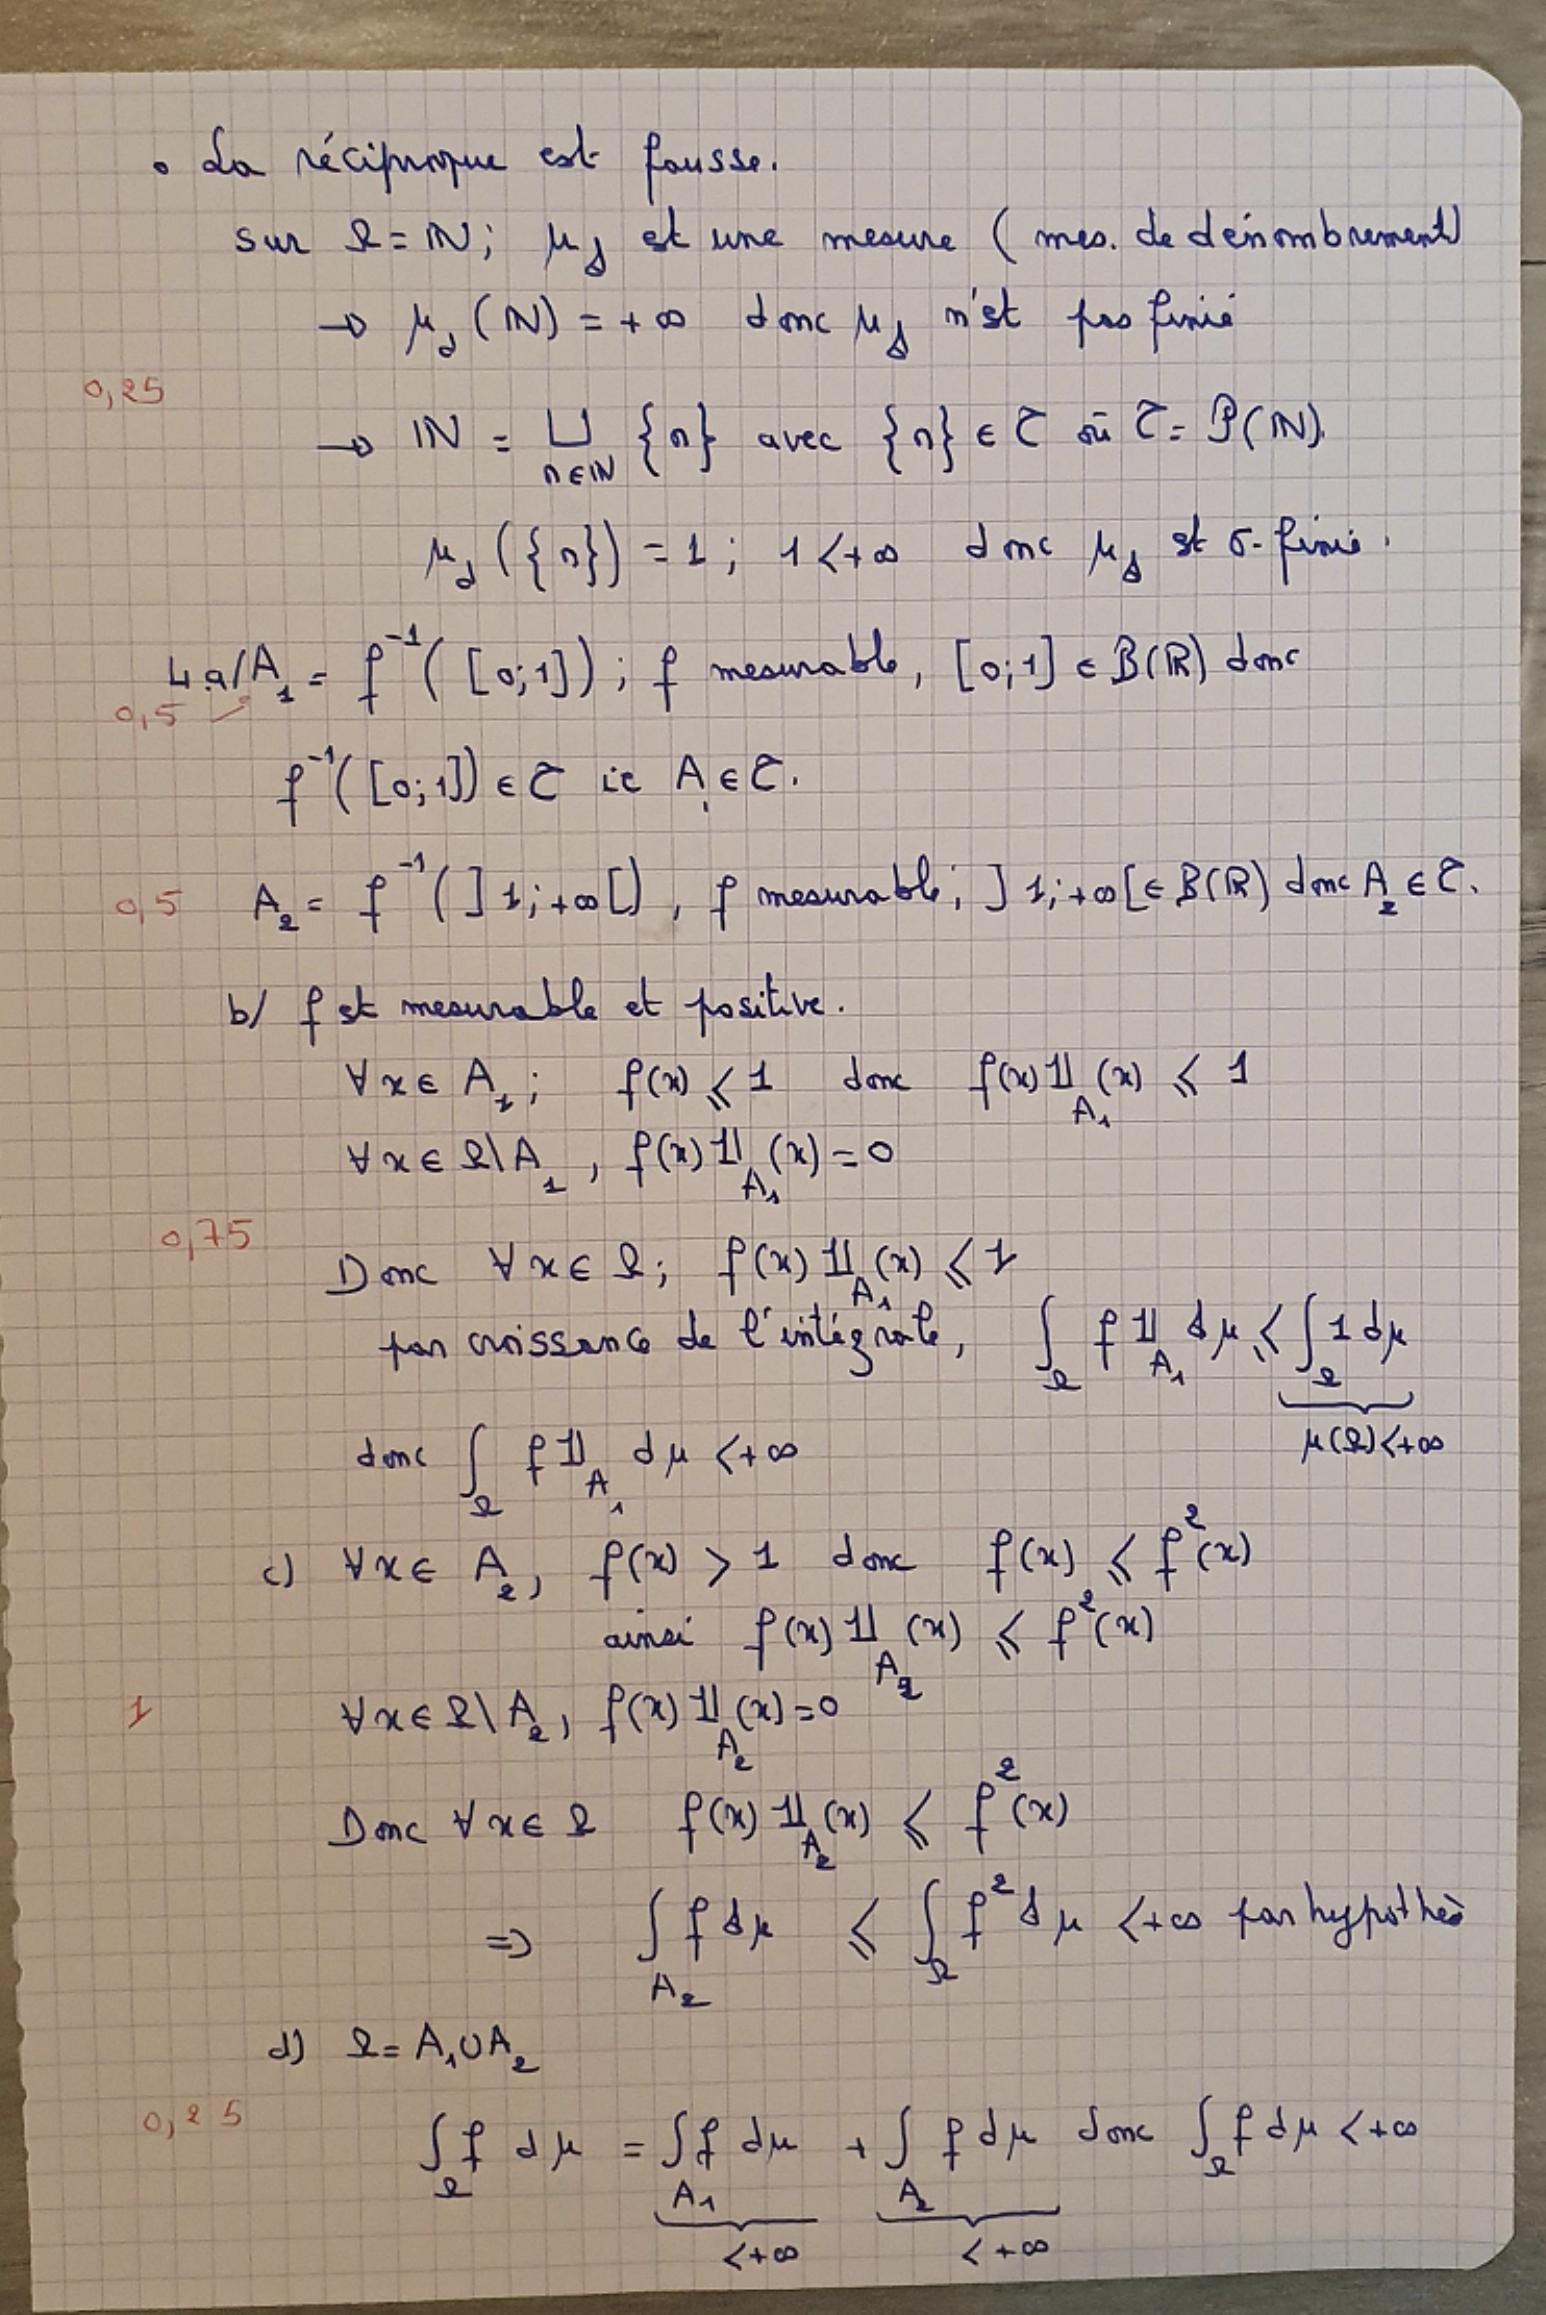 • La réciproque est fausse.
sur Ω = ℕ; μ_d est une mesure (mes. de dénombrement)
→ μ_d(ℕ) = +∞ donc μ_d n'est pas finie
0,25
→ ℕ = ⊔_{n∈ℕ} {n} avec {n} ∈ 𝒯 où 𝒯 = 𝒫(ℕ).
μ_d({n}) = 1 ; 1 < +∞ donc μ_d est σ-finie.
4.a/ A₁ = f⁻¹([0;1]) ; f mesurable, [0;1] ∈ B(ℝ) donc
0,5
f⁻¹([0;1]) ∈ 𝒯 ie A₁ ∈ 𝒯.
0,5 A₂ = f⁻¹(]1;+∞[), f mesurable; ]1;+∞[ ∈ B(ℝ) donc A₂ ∈ 𝒯.
b/ f est mesurable et positive.
∀x ∈ A₁ ; f(x) ⩽ 1 donc f(x)𝟙_{A₁}(x) ⩽ 1
∀x ∈ Ω\A₁, f(x)𝟙_{A₁}(x) = 0
0,75
Donc ∀x ∈ Ω; f(x)𝟙_{A₁}(x) ⩽ 1
par croissance de l'intégrale, ∫_Ω f𝟙_{A₁} dμ ⩽ ∫_Ω 1 dμ
μ(Ω) < +∞
donc ∫_Ω f𝟙_{A₁} dμ < +∞
c) ∀x ∈ A₂, f(x) > 1 donc f(x) ⩽ f²(x)
ainsi f(x)𝟙_{A₂}(x) ⩽ f²(x)
1 ∀x ∈ Ω\A₂, f(x)𝟙_{A₂}(x) = 0
Donc ∀x ∈ Ω f(x)𝟙_{A₂}(x) ⩽ f²(x)
⇒ ∫_{A₂} f dμ ⩽ ∫_Ω f² dμ < +∞ par hypothès
d) Ω = A₁∪A₂
0,25
∫_Ω f dμ = ∫_{A₁} f dμ + ∫_{A₂} f dμ donc ∫_Ω f dμ < +∞
< +∞ < +∞